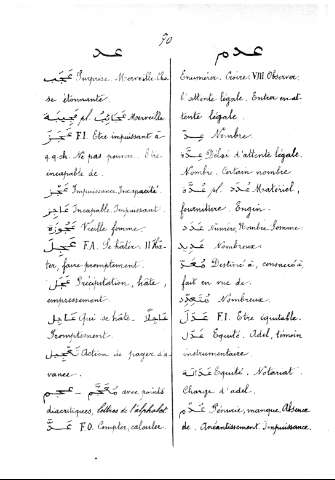 90
عد
عَجَب Surprise. Merveille. Cho
se étonnante.
عَجِيبَة pl. عَجَائِب Merveille.
عَجَزَ F.I. Etre impuissant à
q.q.ch. Ne pas pouvoir. Etre
incapable de.
عَجْز Impuissance, Incapacité.
عَاجِز Incapable, Impuissant.
عَجُوزَة Vieille femme.
عَجِلَ F.A. Se hâter. II Hâ-
ter, faire promptement.
عَجَل Précipitation, hâte,
empressement
عَاجِل Qui se hâte. عَاجِلًا
Promptement.
تَعْجِيل Action de payer d'a-
vance.
عجم — مُعْجَم avec points
diacritiques, lettres de l'alphabet
عَدَّ F.O. Compter, calculer.
عدم
Enumérer. Croire. VIII Observer
l'attente légale. Entrer en at-
tente légale.
عَدّ Nombre.
عِدَّة Délai d'attente légale.
Nombre. Certain nombre
عُدَّة pl. عُدَد Matériel,
fourniture. Engin.
عَدَد Numéro, Nombre, Somme.
عَدِيد Nombreux.
مُعَدّ Destiné à, consacré à,
fait en vue de.
مُتَعَدِّد Nombreux.
عَدَلَ F.I. Etre équitable.
عَدْل Equité. Adel, témoin
instrumentaire
عَدَالَة Equité. Notariat.
Charge d'adel.
عَدَم Pénurie, manque, Absence
de. Anéantissement. Impuissance.